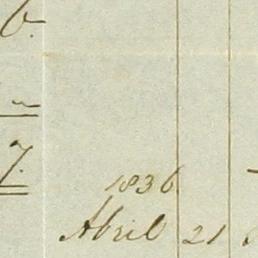 6.
7.
1836.
Abril 21